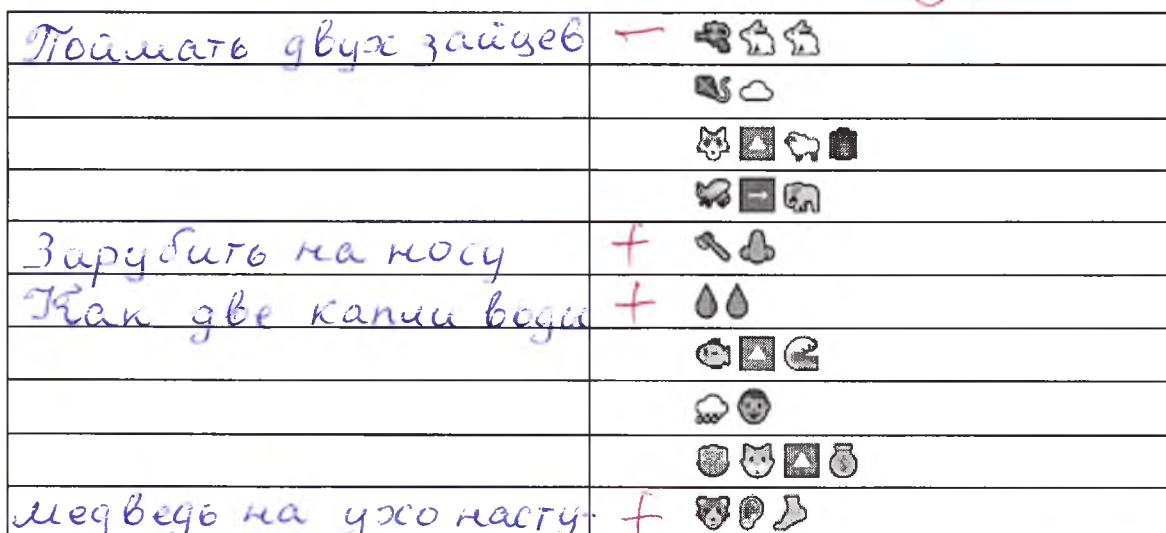 Поймать двух зайцев −
Зарубить на носу +
Как две капли води +
медведь на ухо насту- +